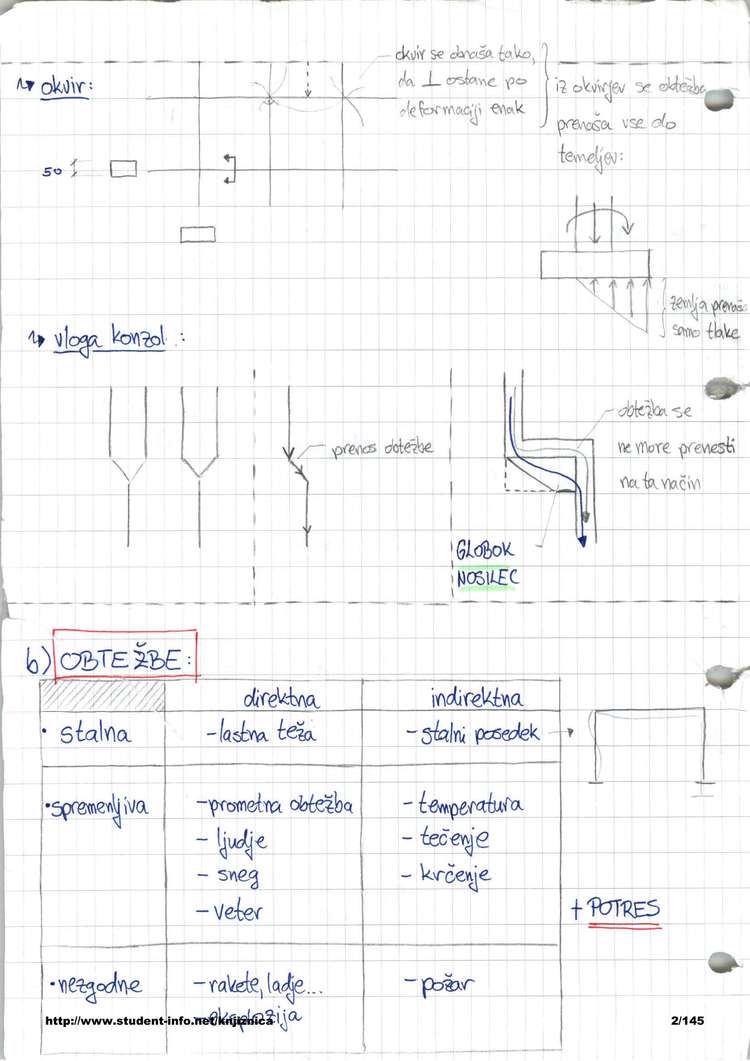 okvir:
okvir se obnaša tako,
da ⊥ ostane po
deformaciji enak
iz okvirjev se obtežba
prenaša vse do
temeljev:
50
zemlja prenaša
samo tlake
vloga konzol:
prenos obtežbe
obtežba se
ne more prenesti
na ta način
GLOBOK
NOSILEC
b) OBTEŽBE:
direktna indirektna
• stalna - lastna teža - stalni posedek
• spremenljiva - prometna obtežba - temperatura
- ljudje - tečenje
- sneg - krčenje
- veter
+ POTRES
• nezgodne - rakete, ladje... - požar
- eksplozija
http://www.student-info.net/knjiznica 2/145